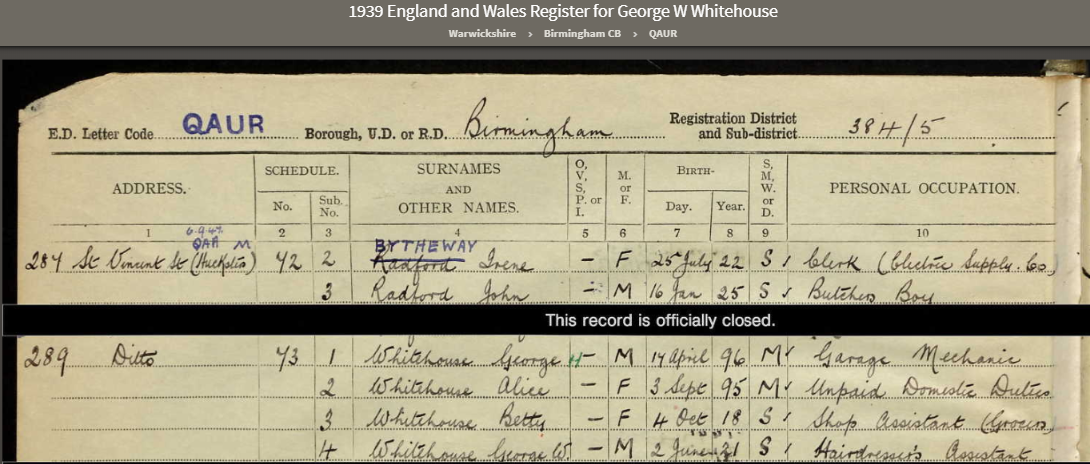 1939 England and Wales Register for George W Whitehouse
Warwickshire › Birmingham CB › QAUR
E.D. Letter Code QAUR Borough, U.D. or R.D. Birmingham Registration District and Sub-district 384/5
ADDRESS. SCHEDULE. SURNAMES AND OTHER NAMES. O, V, S, P. or I. M. or F. BIRTH- S, M, W. or D. PERSONAL OCCUPATION.
No. Sub. No. Day. Year.
1 2 3 4 5 6 7 8 9 10
QAR M
BYTHEWAY
287 St Vincent St (Huckster) 72 2 Radford Irene – F 25 July 22 S Clerk (Electric Supply. Co)
3 Radford John – M 16 Jan 25 S Butchers Boy
This record is officially closed.
289 Ditto 73 1 Whitehouse George – M 14 April 96 M Garage Mechanic
2 Whitehouse Alice – F 3 Sept 95 M Unpaid Domestic Duties
3 Whitehouse Betty – F 4 Oct 18 S Shop Assistant (Grocers)
4 Whitehouse George W. – M 2 June 21 S Hairdresser's Assistant